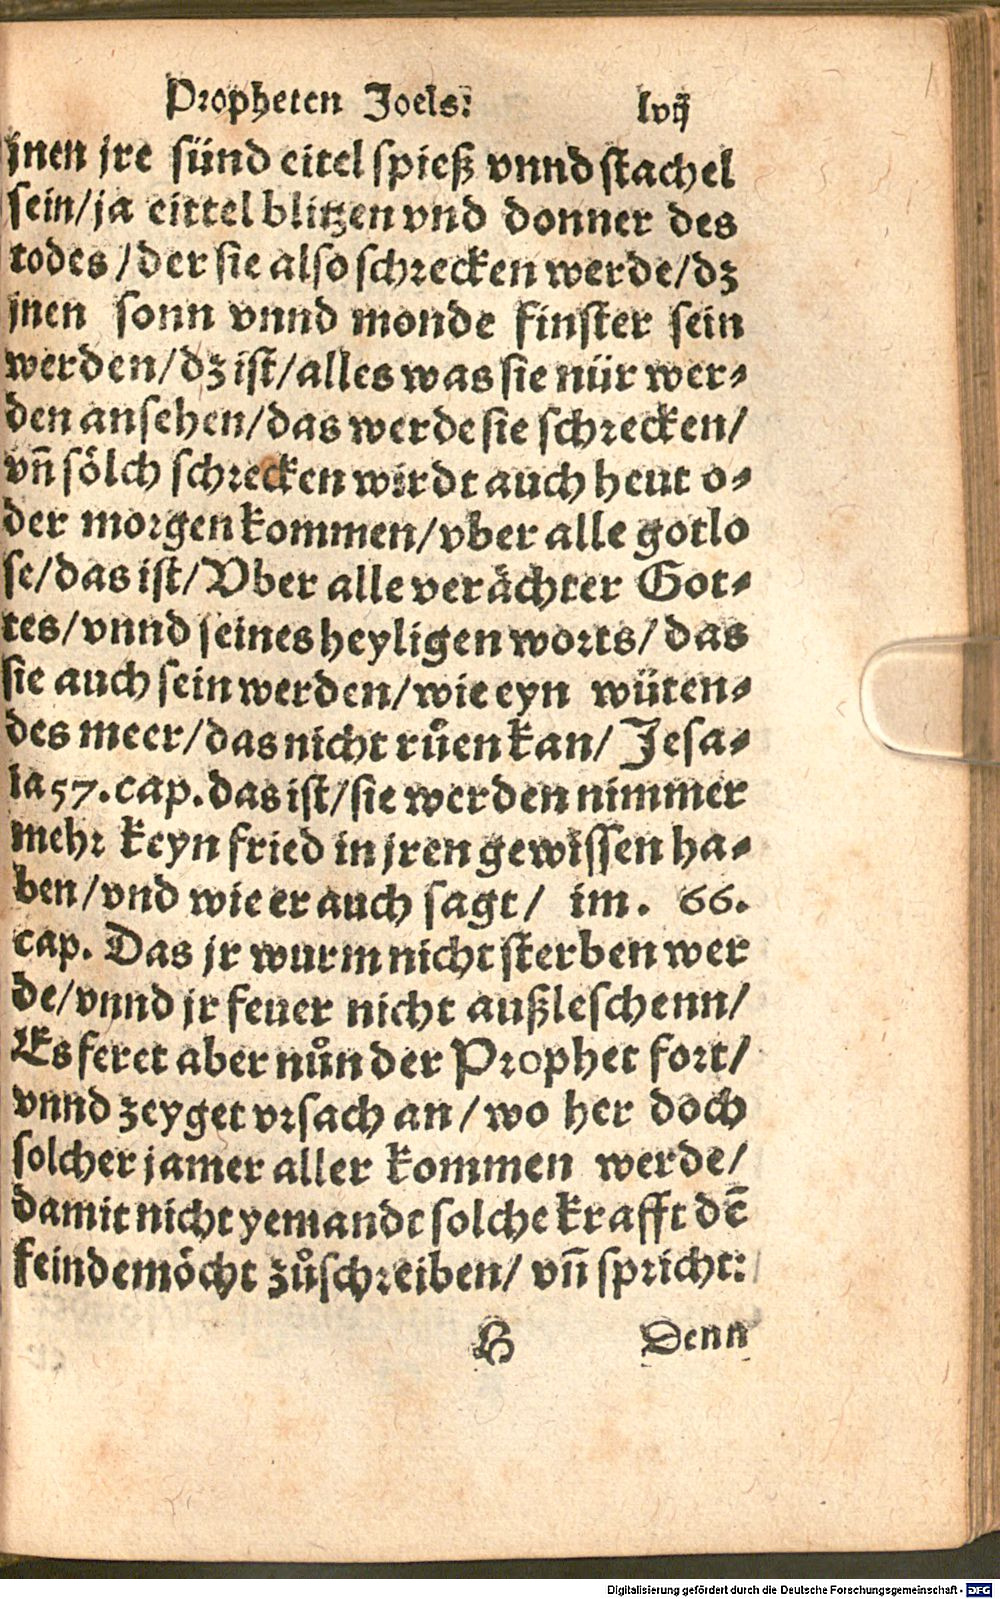 Propheten Joels. lvij
jnen jre sünd eitel spieß vnnd stachel
sein/ja eittel blitzen vnd donner des
todes/der sie also schrecken werde/dz
jnen sonn vnnd monde finster sein
werden/dz ist/alles was sie nür wer-
den ansehen/das werde sie schrecken/
vñ sölch schrecken wirdt auch heut o-
der morgen kommen/vber alle gotlo
se/das ist/Vber alle verächter Got-
tes/vnnd seines heyligen worts/das
sie auch sein werden/wie eyn wüten-
des meer/das nicht růen kan/Jesa-
ia 57.cap.das ist/sie werden nimmer
mehr keyn fried in jren gewissen ha-
ben/vnd wie er auch sagt/ im. 66.
cap. Das jr wurm nicht sterben wer
de/vnnd jr feuer nicht außleschenn/
Es feret aber nůn der Prophet fort/
vnnd zeyget vrsach an/wo her doch
solcher jamer aller kommen werde/
damit nicht yemandt solche krafft dē
feinde möcht zůschreiben/vñ spricht:
H Denn
Digitalisierung gefördert durch die Deutsche Forschungsgemeinschaft - DFG